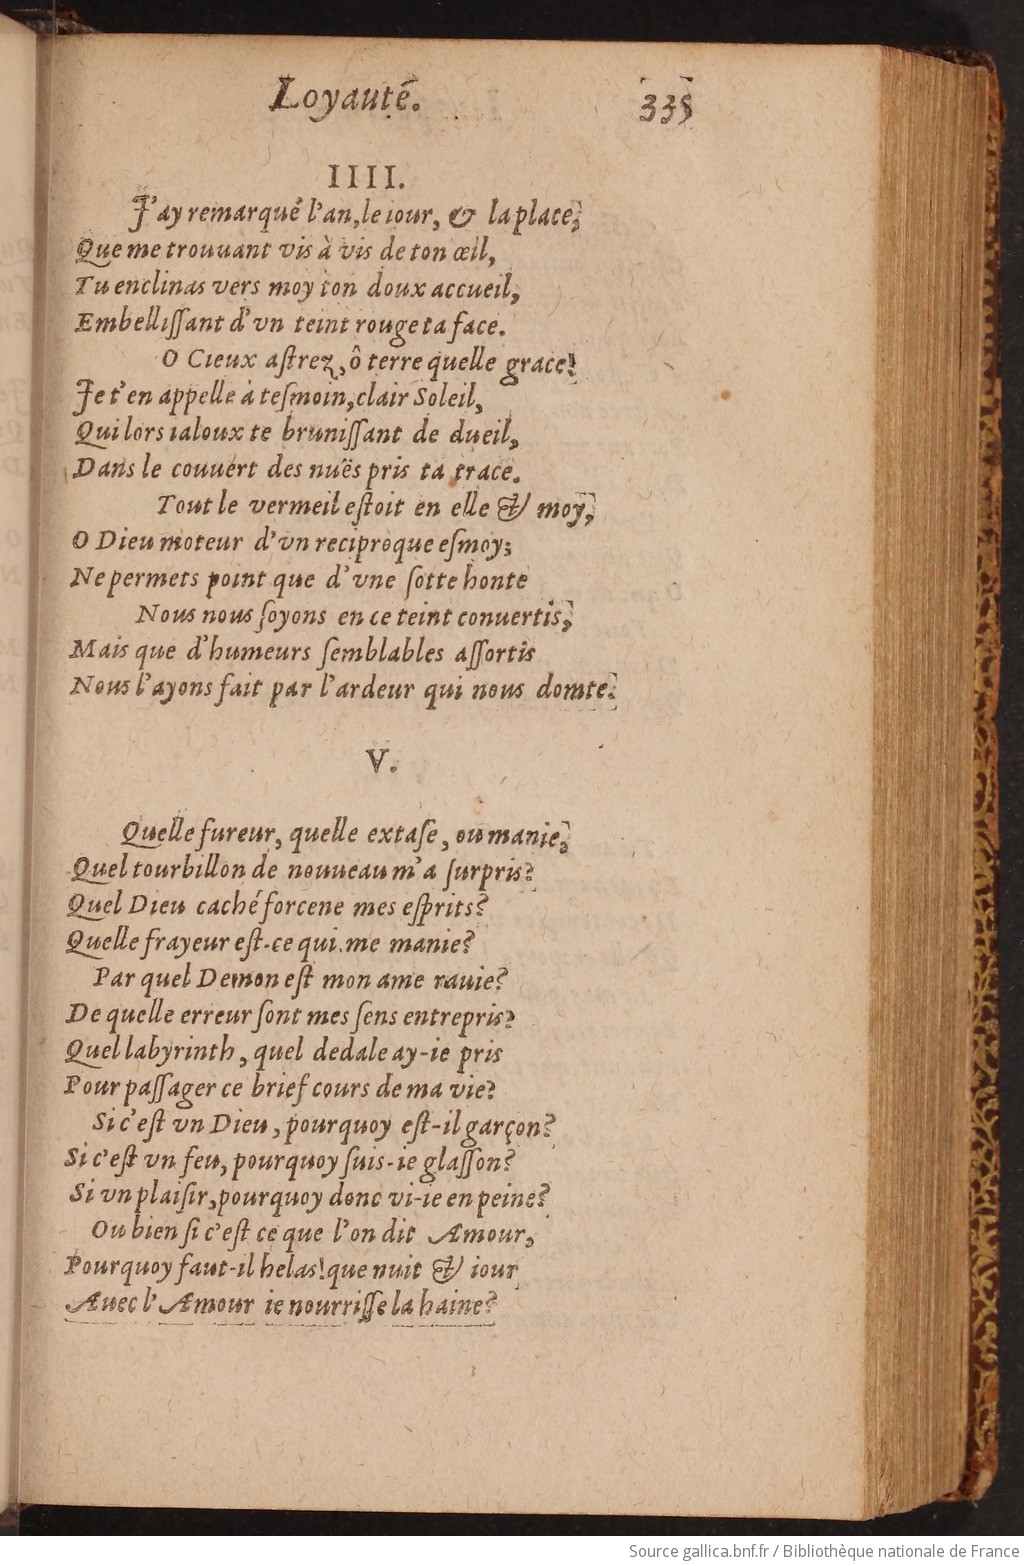 Loyauté. 335
IIII.
J'ay remarqué l'an, le iour, & la place,
Que me trouuant vis à vis de ton œil,
Tu enclinas vers moy ton doux accueil,
Embelliſſant d'vn teint rouge ta face.
O Cieux aſtrez, ô terre quelle grace!
Je t'en appelle à teſmoin, clair Soleil,
Qui lors ialoux te bruniſſant de dueil,
Dans le couuert des nuës pris ta trace.
Tout le vermeil eſtoit en elle & moy,
O Dieu moteur d'vn reciproque eſmoy;
Ne permets point que d'vne ſotte honte
Nous nous ſoyons en ce teint conuertis,
Mais que d'humeurs ſemblables aſſortis
Nous l'ayons fait par l'ardeur qui nous domte.
V.
Quelle fureur, quelle extaſe, ou manie,
Quel tourbillon de nouueau m'a ſurpris?
Quel Dieu caché forcene mes eſprits?
Quelle frayeur eſt-ce qui me manie?
Par quel Demon eſt mon ame rauie?
De quelle erreur ſont mes ſens entrepris?
Quel labyrinth, quel dedale ay-ie pris
Pour paſſager ce brief cours de ma vie?
Si c'eſt vn Dieu, pourquoy eſt-il garçon?
Si c'eſt vn feu, pourquoy ſuis-ie glaſſon?
Si vn plaiſir, pourquoy donc vi-ie en peine?
Ou bien ſi c'eſt ce que l'on dit Amour,
Pourquoy faut-il helas! que nuit & iour
Auec l'Amour ie nourriſſe la haine?
Source gallica.bnf.fr / Bibliothèque nationale de France